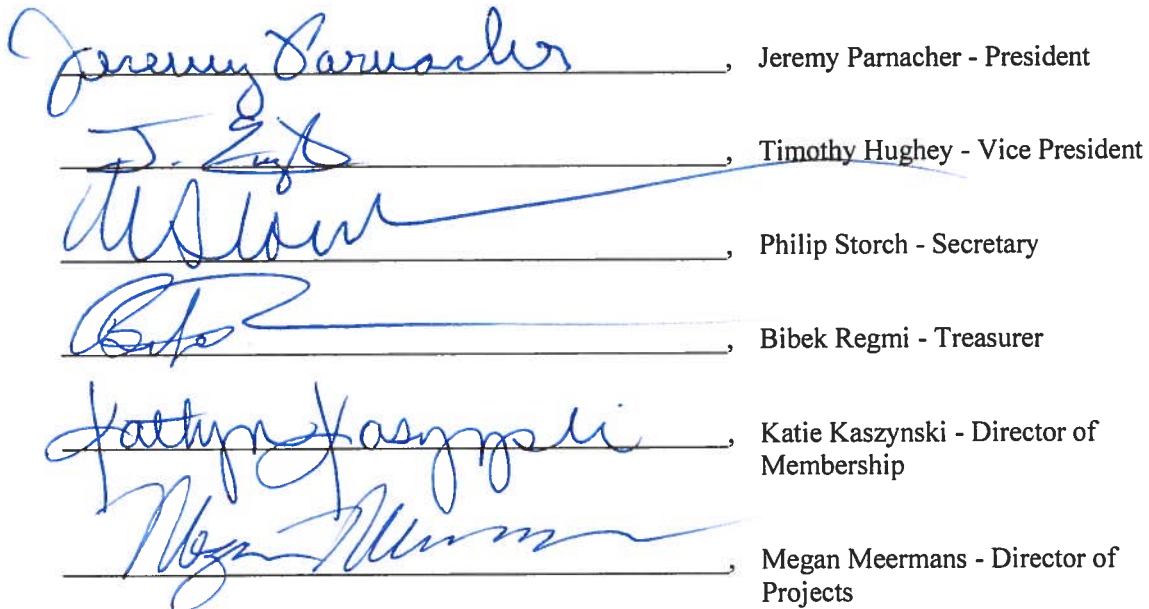 Jeremy Parnacher , Jeremy Parnacher - President
, Timothy Hughey - Vice President
, Philip Storch - Secretary
, Bibek Regmi - Treasurer
Kathryn Kaszynski , Katie Kaszynski - Director of
Membership
Megan Meermans , Megan Meermans - Director of
Projects